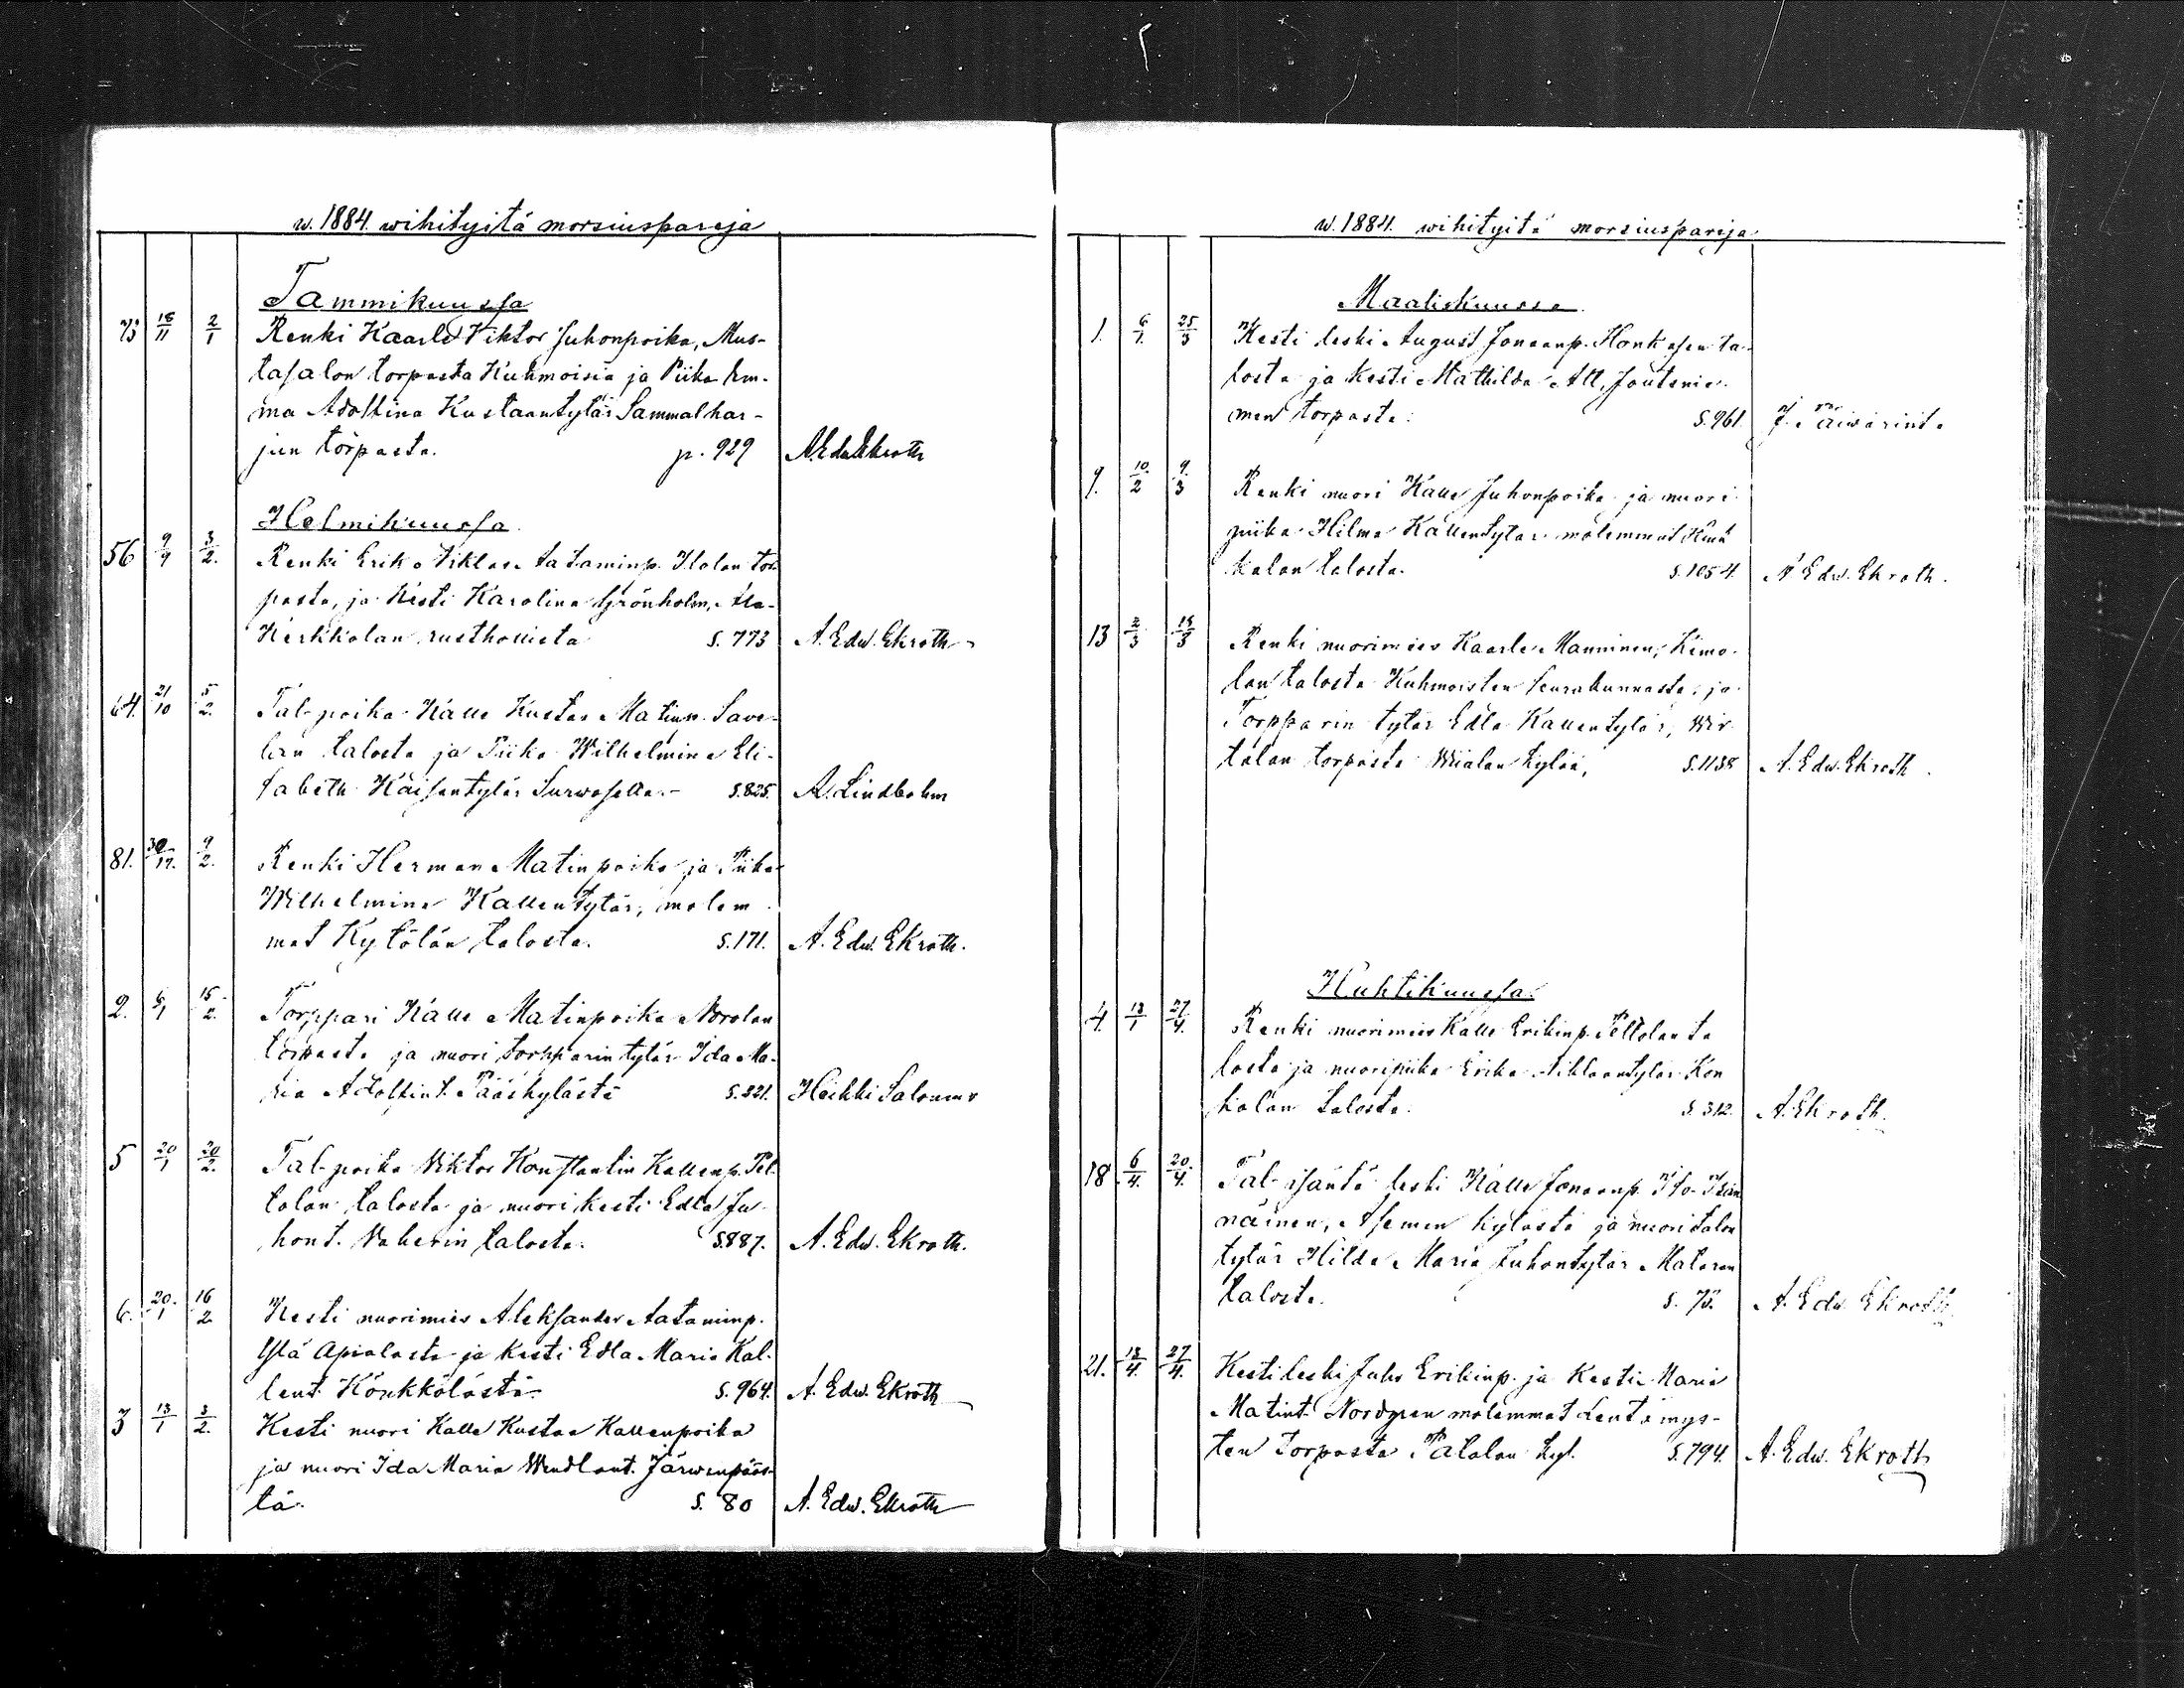 w. 1884. wihityitä morsiuspareja
Tammikuussa
73 18/11 2/1 Renki Kaarle Viktor Juhonpoika, Mus-
tasalon torpasta Kuhmoisia ja Piika Em-
ma Adolfina Kustaantytär Sammalhar-
jun torpasta. p. 929 A. Edw. Ekroth
Helmikuussa
56 9/9 3/2. Renki Erik Niklas Aataminp. Ilolan tor-
pasta, ja Kesti Karolina Grönholm, Ala-
Kerkkolan rusthollista S. 773 A. Edw. Ekroth
64. 21/10 5/2. Tal-poika Kalle Kustaa Matinp. Save-
lan talosta ja Piika Wilhelmina Eli-
sabeth Kaisantytär Surwosella S. 825. A. Lindbohm
81. 30/12. 9/2. Renki Herman Matinpoika ja Piika
Wilhelmina Kallentytär, molem-
mat Kytölän talosta. S. 171. A. Edw. Ekroth.
2. 6/1 15/2. Torppari Kalle Matinpoika Norolan
torpasta ja nuori torpparin tytär Ida Ma-
ria Adolfint. Pääskylästä S. 321. Heikki Salovius
5 20/1 20/2. Tal-poika Viktor Konstantin Kallenp. Pel-
tolan talosta ja nuori kesti Edla Ju-
hont. Vaherin talosta. S. 887. A. Edw. Ekroth.
6. 20/1 16/2 Kesti nuorimies Aleksander Aataminp.
Ylä Apialasta ja kesti Edla Maria Kal-
lent. Könkkölästä S. 964. A. Edw. Ekroth
3 13/1 3/2. Kesti nuori Kalle Kustaa Kallenpoika
ja nuori Ida Maria Wendlant. Järwenpääs-
tä. S. 80 A. Edw. Ekroth
w. 1884. wihityitä morsiuspareja
Maaliskuussa
1. 6/1. 25/3 Kesti leski August Joneenp. Honkasen ta-
losta ja kesti Mathilda Alt, Joutsnie-
men torpasta. S. 961. J. Päiwärinta
9. 10/2 9/3 Renki nuori Kalle Juhonpoika ja nuori
piika Hilma Kallentytär molemmat
kalan talosta. S. 1054. A. Edw. Ekroth.
13 2/3 15/3 Renki nuorimies Kaarle Manninen, Kimo-
lan talosta Kuhmoisten seurakunnasta, ja
Torpparin tytär Edla Kallentytär, Wir-
talan torpasta Wialan kylää, S. 1138 A. Edw. Ekroth.
Huhtikuussa.
4. 13/1 27/4. Renki nuorimies Kalle Erikinp. Peltolan ta-
losta ja nuoripiika Erika Niklaantytär Kon-
kolan talosta. S. 312. A. Ekroth.
18 6/4. 20/4. Tal-isäntä leski Kalle Joneenp. Iso-
näinen, Asemen kylästä ja nuori talon
tytär Hilda Maria Juhontytär Mataran
talosta. S. 75. A. Edw. Ekroth
21. 13/4. 27/4. Kesti leski Juho Erikinp. ja Kesti Maria
Matint. Nordgren molemmat Lentämys-
ten Torpasta Pätälän kyl. S. 794. A. Edw. Ekroth